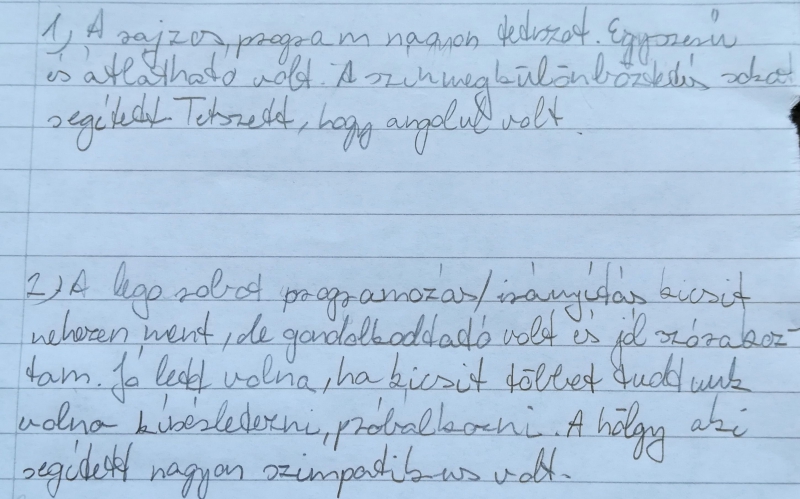 1, A rajzos program nagyon tetszet. Egyszerű
és átlátható volt. A színmegkülönböztetés sokat
segített. Tetszett, hogy angolul volt.
2) A lego robot programozás/irányítás kicsit
nehezen ment, de gondolkodtató volt és jól szórakoz-
tam. Jó lett volna, ha kicsit többet tudtunk
volna kísérletezni, próbálkozni. A hölgy aki
segített nagyon szimpatikus volt.